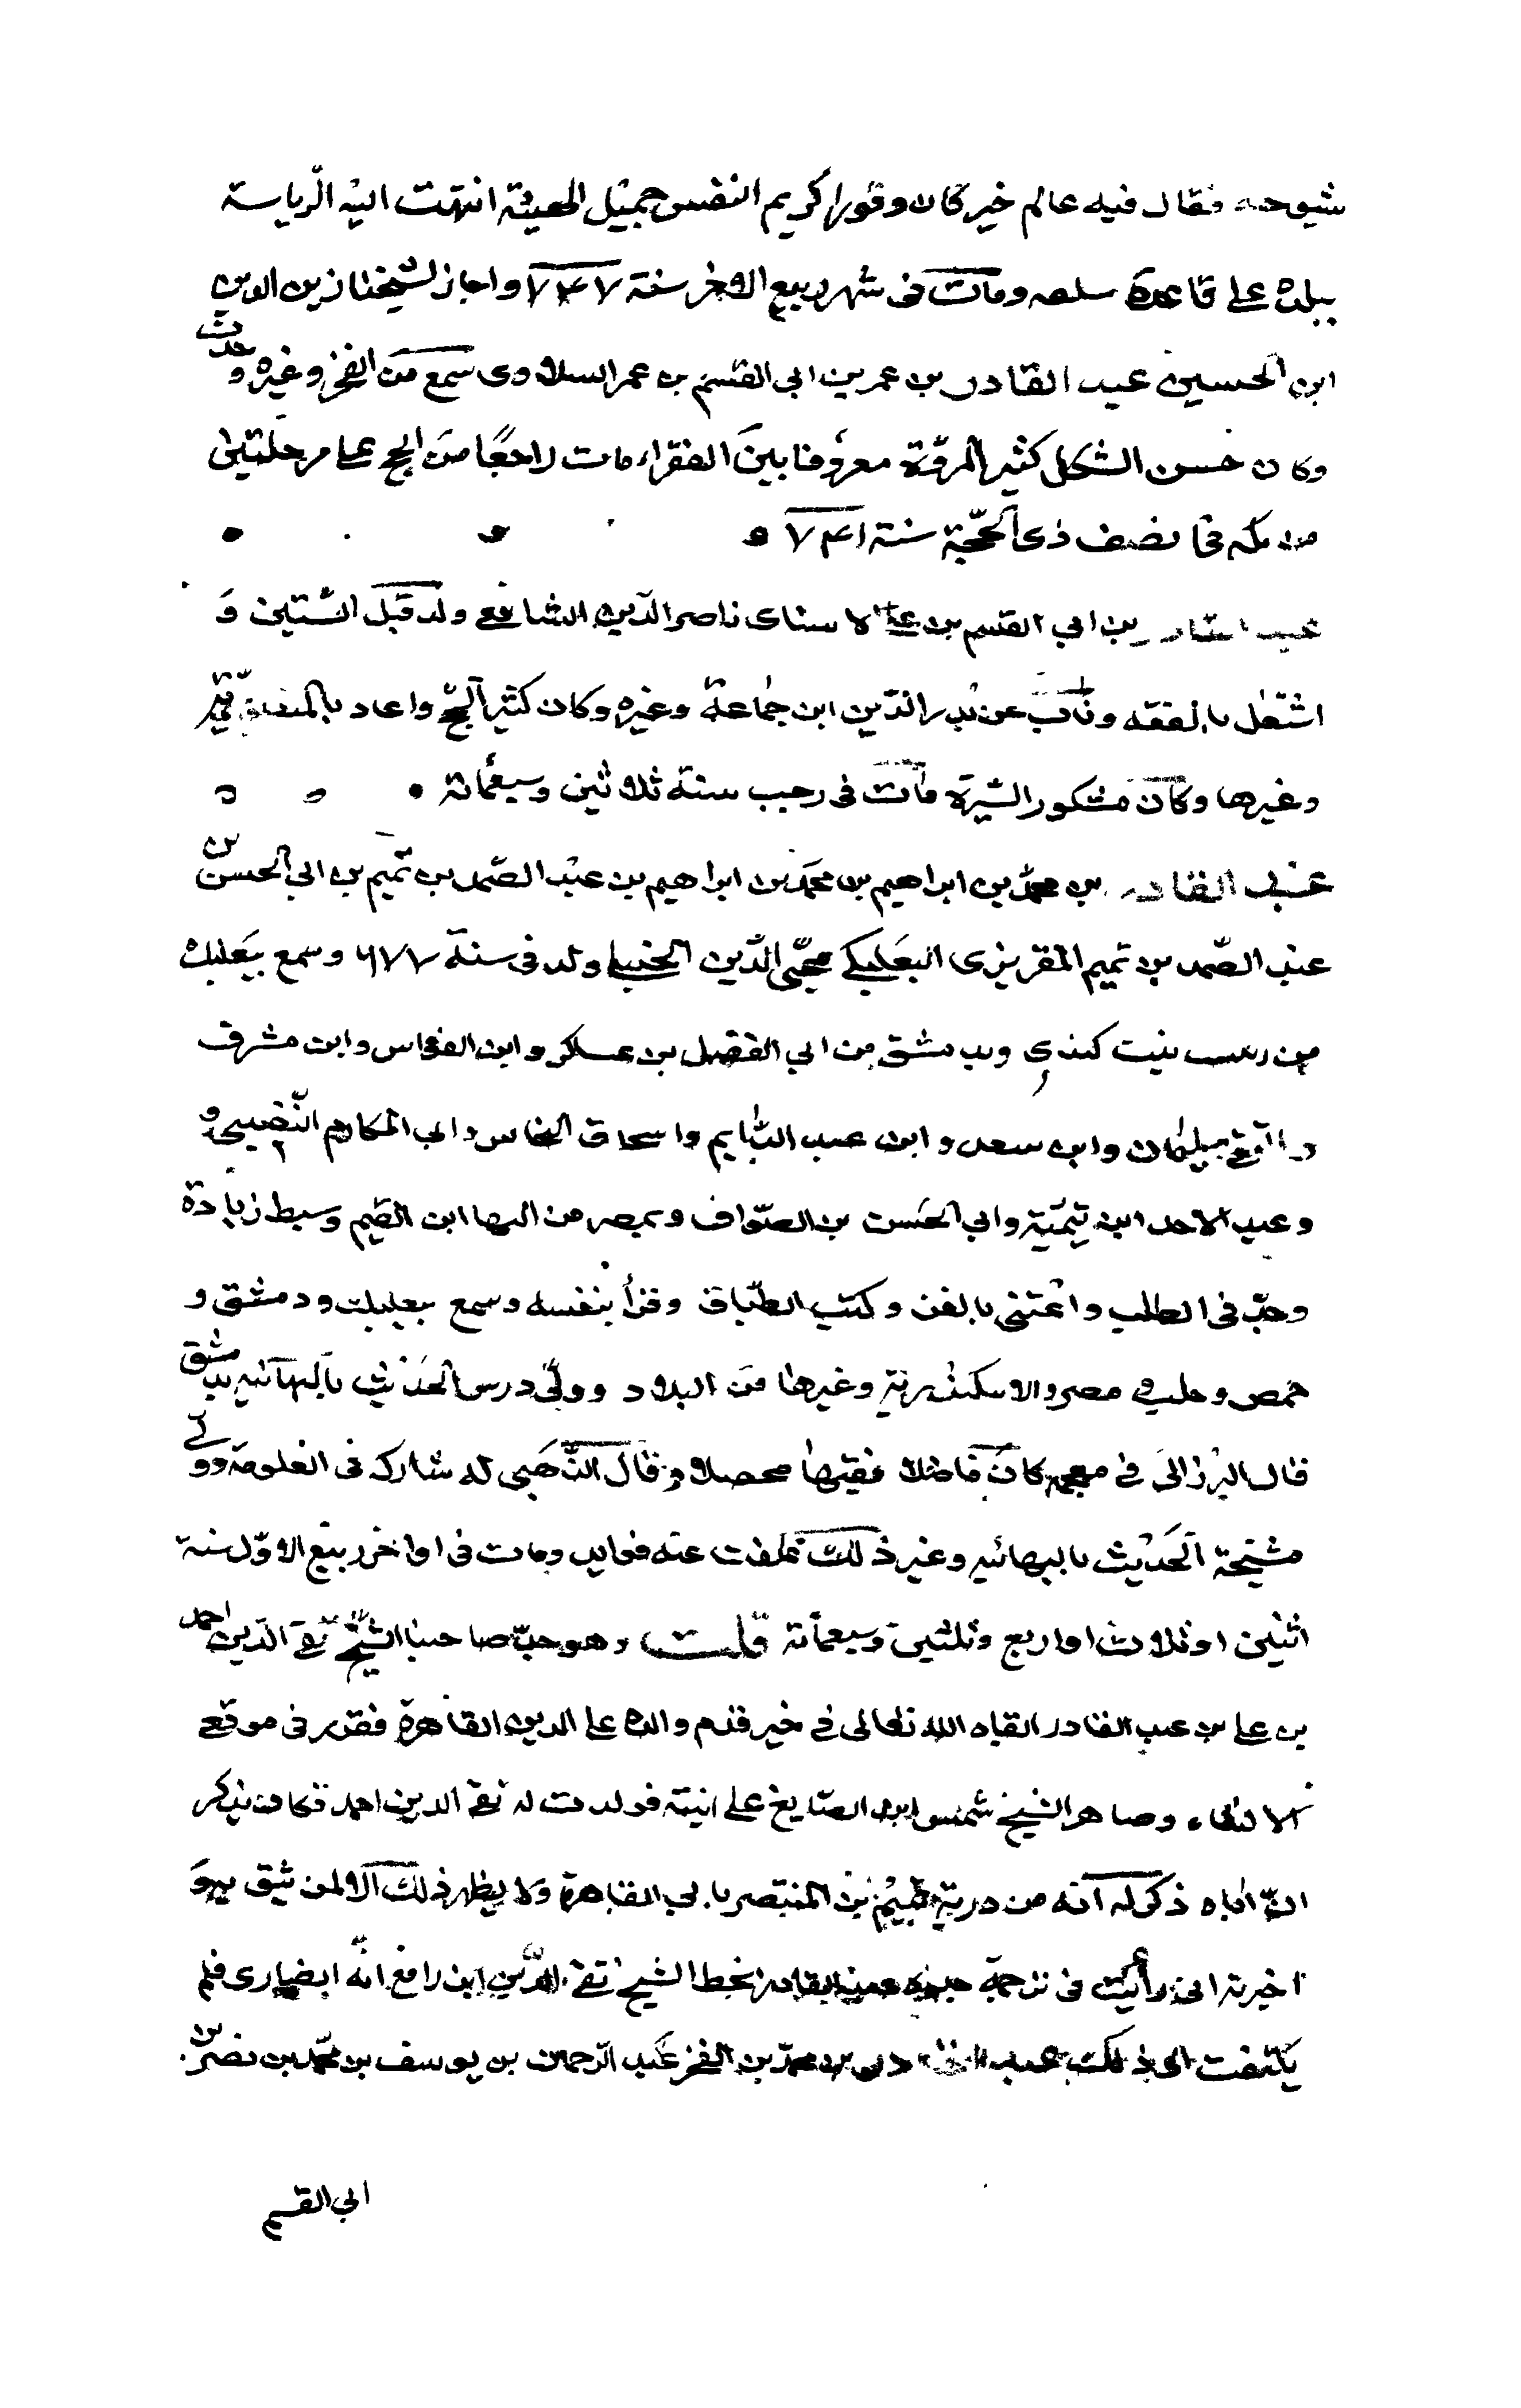 شيوخه فقال فيه عالم خير كان وقورا كريم النفس جميل الهيئة انتهت اليه الرياسة
ببلده على قاعدة سلفه ومات فى شهر ربيع الاخر سنة ٧٤٧ واجاز لشيخنا زين الدين
ابن الحسين عبد القادر بن عمر بن ابي القسم بن عمر السلاوى سمع من الفخر وغيره وحدث
وكان حسن الشكل كثير المروّة معروفا بين الفقراء مات راجعًا من الحج على مرحلتين
من مكه فى نصف ذى الحجّة سنة ٧٤١
عبد القادر بن ابي القسم بن على الاسناى ناصر الدين الشافعى ولد قبل السّتين و
اشتغل بالفقه وناب عن بدر الدّين ابن جماعة وغيره وكان كثير الحج واعاد
وغيرها وكان مشكور السّيرة مات فى رجب سنة ثلاثين وسبعمائة
عبد القادر بن محمد بن ابراهيم بن محمد بن ابراهيم بن عبد الصّمد بن تميم بن ابي الحسن بن
عبد الصّمد بن تميم المقريزى البعلبكى محيى الدّين الحنبلى ولد فى سنة ٦٧٧ وسمع ببعلبك
من زينب بنت كندى وبدمشق من ابي الفضل بن عساكر وابن القواس وابن مشرف
والتقى سليمان وابن سعد وابن عبد الدّايم واسحاق النحاس وابي المكارم النّصيبى و
وعبد الاحد ابن تيميّة وابي الحسن بن الصوّاف وبمصر من البها ابن القيم وسبط زيادة
وجدّ فى الطلب واعتنى بالفن وكتب الطّباق وقرأ بنفسه وسمع ببعلبك ودمشق و
حمص وحلب ومصر والاسكندرية وغيرها من البلاد وولى درس الحديث بالبهائيه بدمشق
قال البرزالى فى معجمه كان فاضلا فقيها محصلا وقال الذّهبى له مشاركه فى العلوم وولى
مشيخة الحديث بالبهائيه وغير ذلك علقت عنه فوايد ومات فى اواخر ربيع الاوّل سنة
اثنين او ثلاث او اربع وثلثين وسبعمائة قلت وهو جدّ صاحبنا الشيخ تقى الدين احمد
بن على بن عبد القادر ابقاه الله تعالى فى خير قدم والده على الدين القاهرة فقرر فى موقعى
الانشاء وصاهر الشيخ شمس ابن الصّايغ على ابنته فولدت له تقى الدين احمد فكان يذكر
انّ اباه ذكر له انه من ذرية تميم بن المنتصر بانى القاهرة ولا يظهر ذلك الا لمن يثق به و
اخبرته انى رأيت فى ترجمة جده عبد القادر بخط الشيخ تقى الدّين ابن رافع انه انصارى فلم
يلتفت الى ذلك عبد القادر بن محمد بن الفخر عبد الرحمن بن يوسف بن محمّد بن نصر بن
ابي القسم